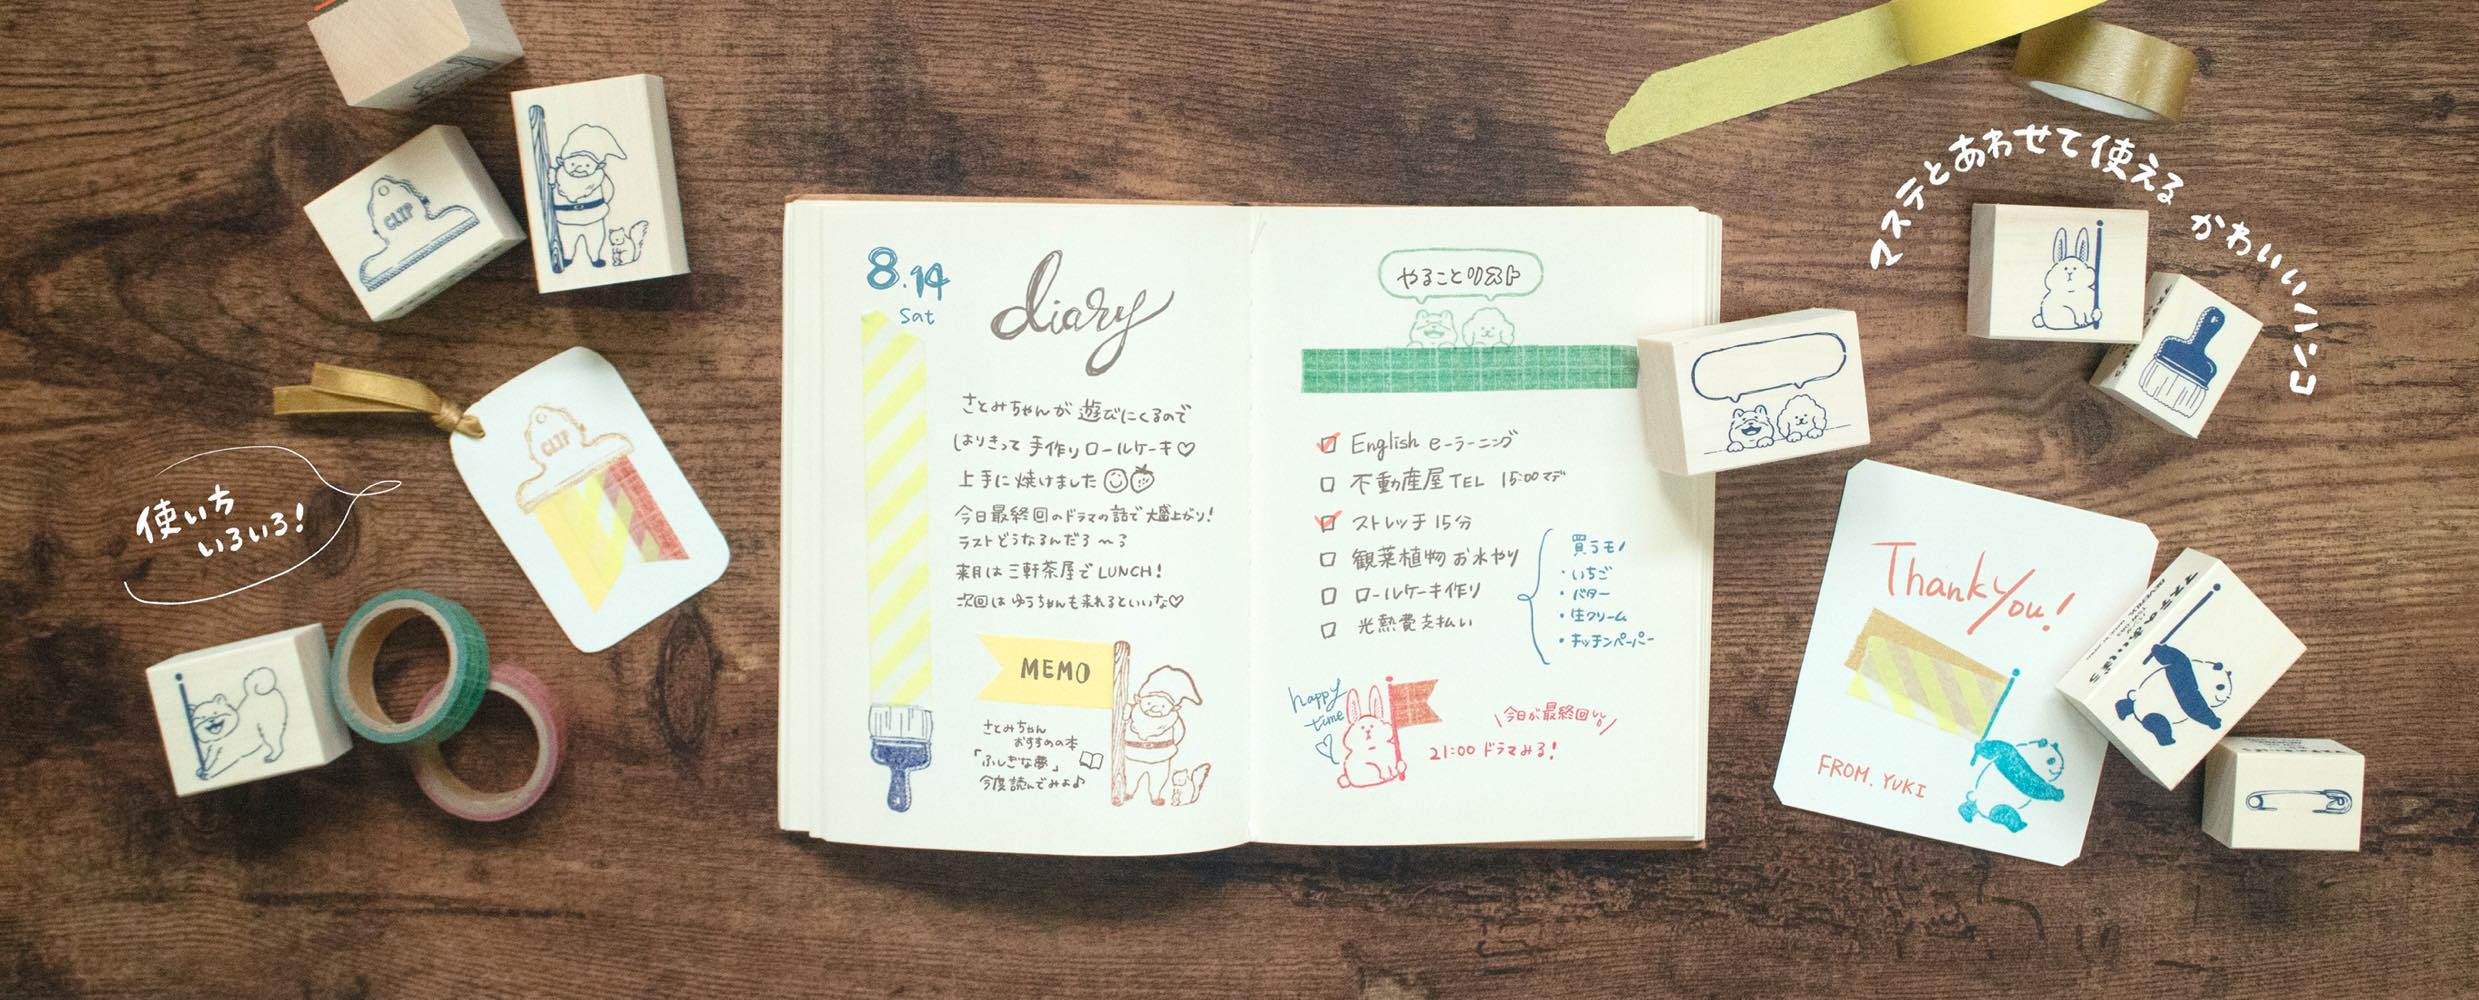 CLIP
使い方
いろいろ!
CLIP
8.14
Sat
diary
さとみちゃんが遊びにくるので
はりきって手作りロールケーキ♡
上手に焼けました
今日最終回のドラマの話で大盛上がり!
ラストどうなるんだろ〜う
来月は三軒茶屋でLUNCH!
次回はゆうちゃんも来れるといいな♡
MEMO
さとみちゃん
おすすめの本
「ふしぎな夢」
今度読んでみよ♪
やることリスト
English e-ラーニング
不動産屋TEL 15:00マデ
ストレッチ15分
観葉植物お水やり
ロールケーキ作り
光熱費支払い
買うモノ
・いちご
・バター
・生クリーム
・キッチンペーパー
happy
time
♡
\今日が最終回/
21:00 ドラマみる!
マステとあわせて使える かわいいハンコ
Thank You!
FROM. YUKI
ステのあいぼう